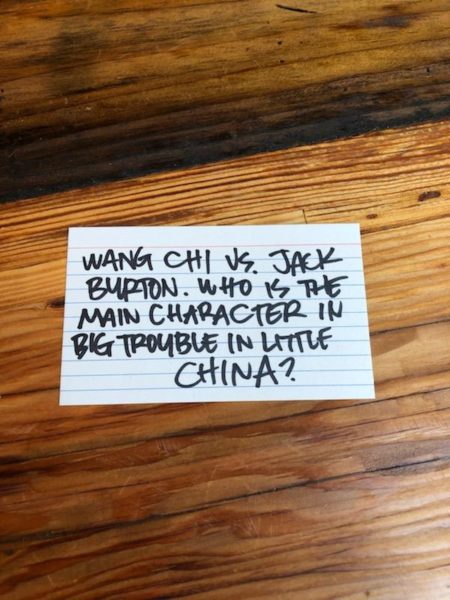 WANG CHI VS. JACK
BURTON. WHO IS THE
MAIN CHARACTER IN
BIG TROUBLE IN LITTLE
CHINA?